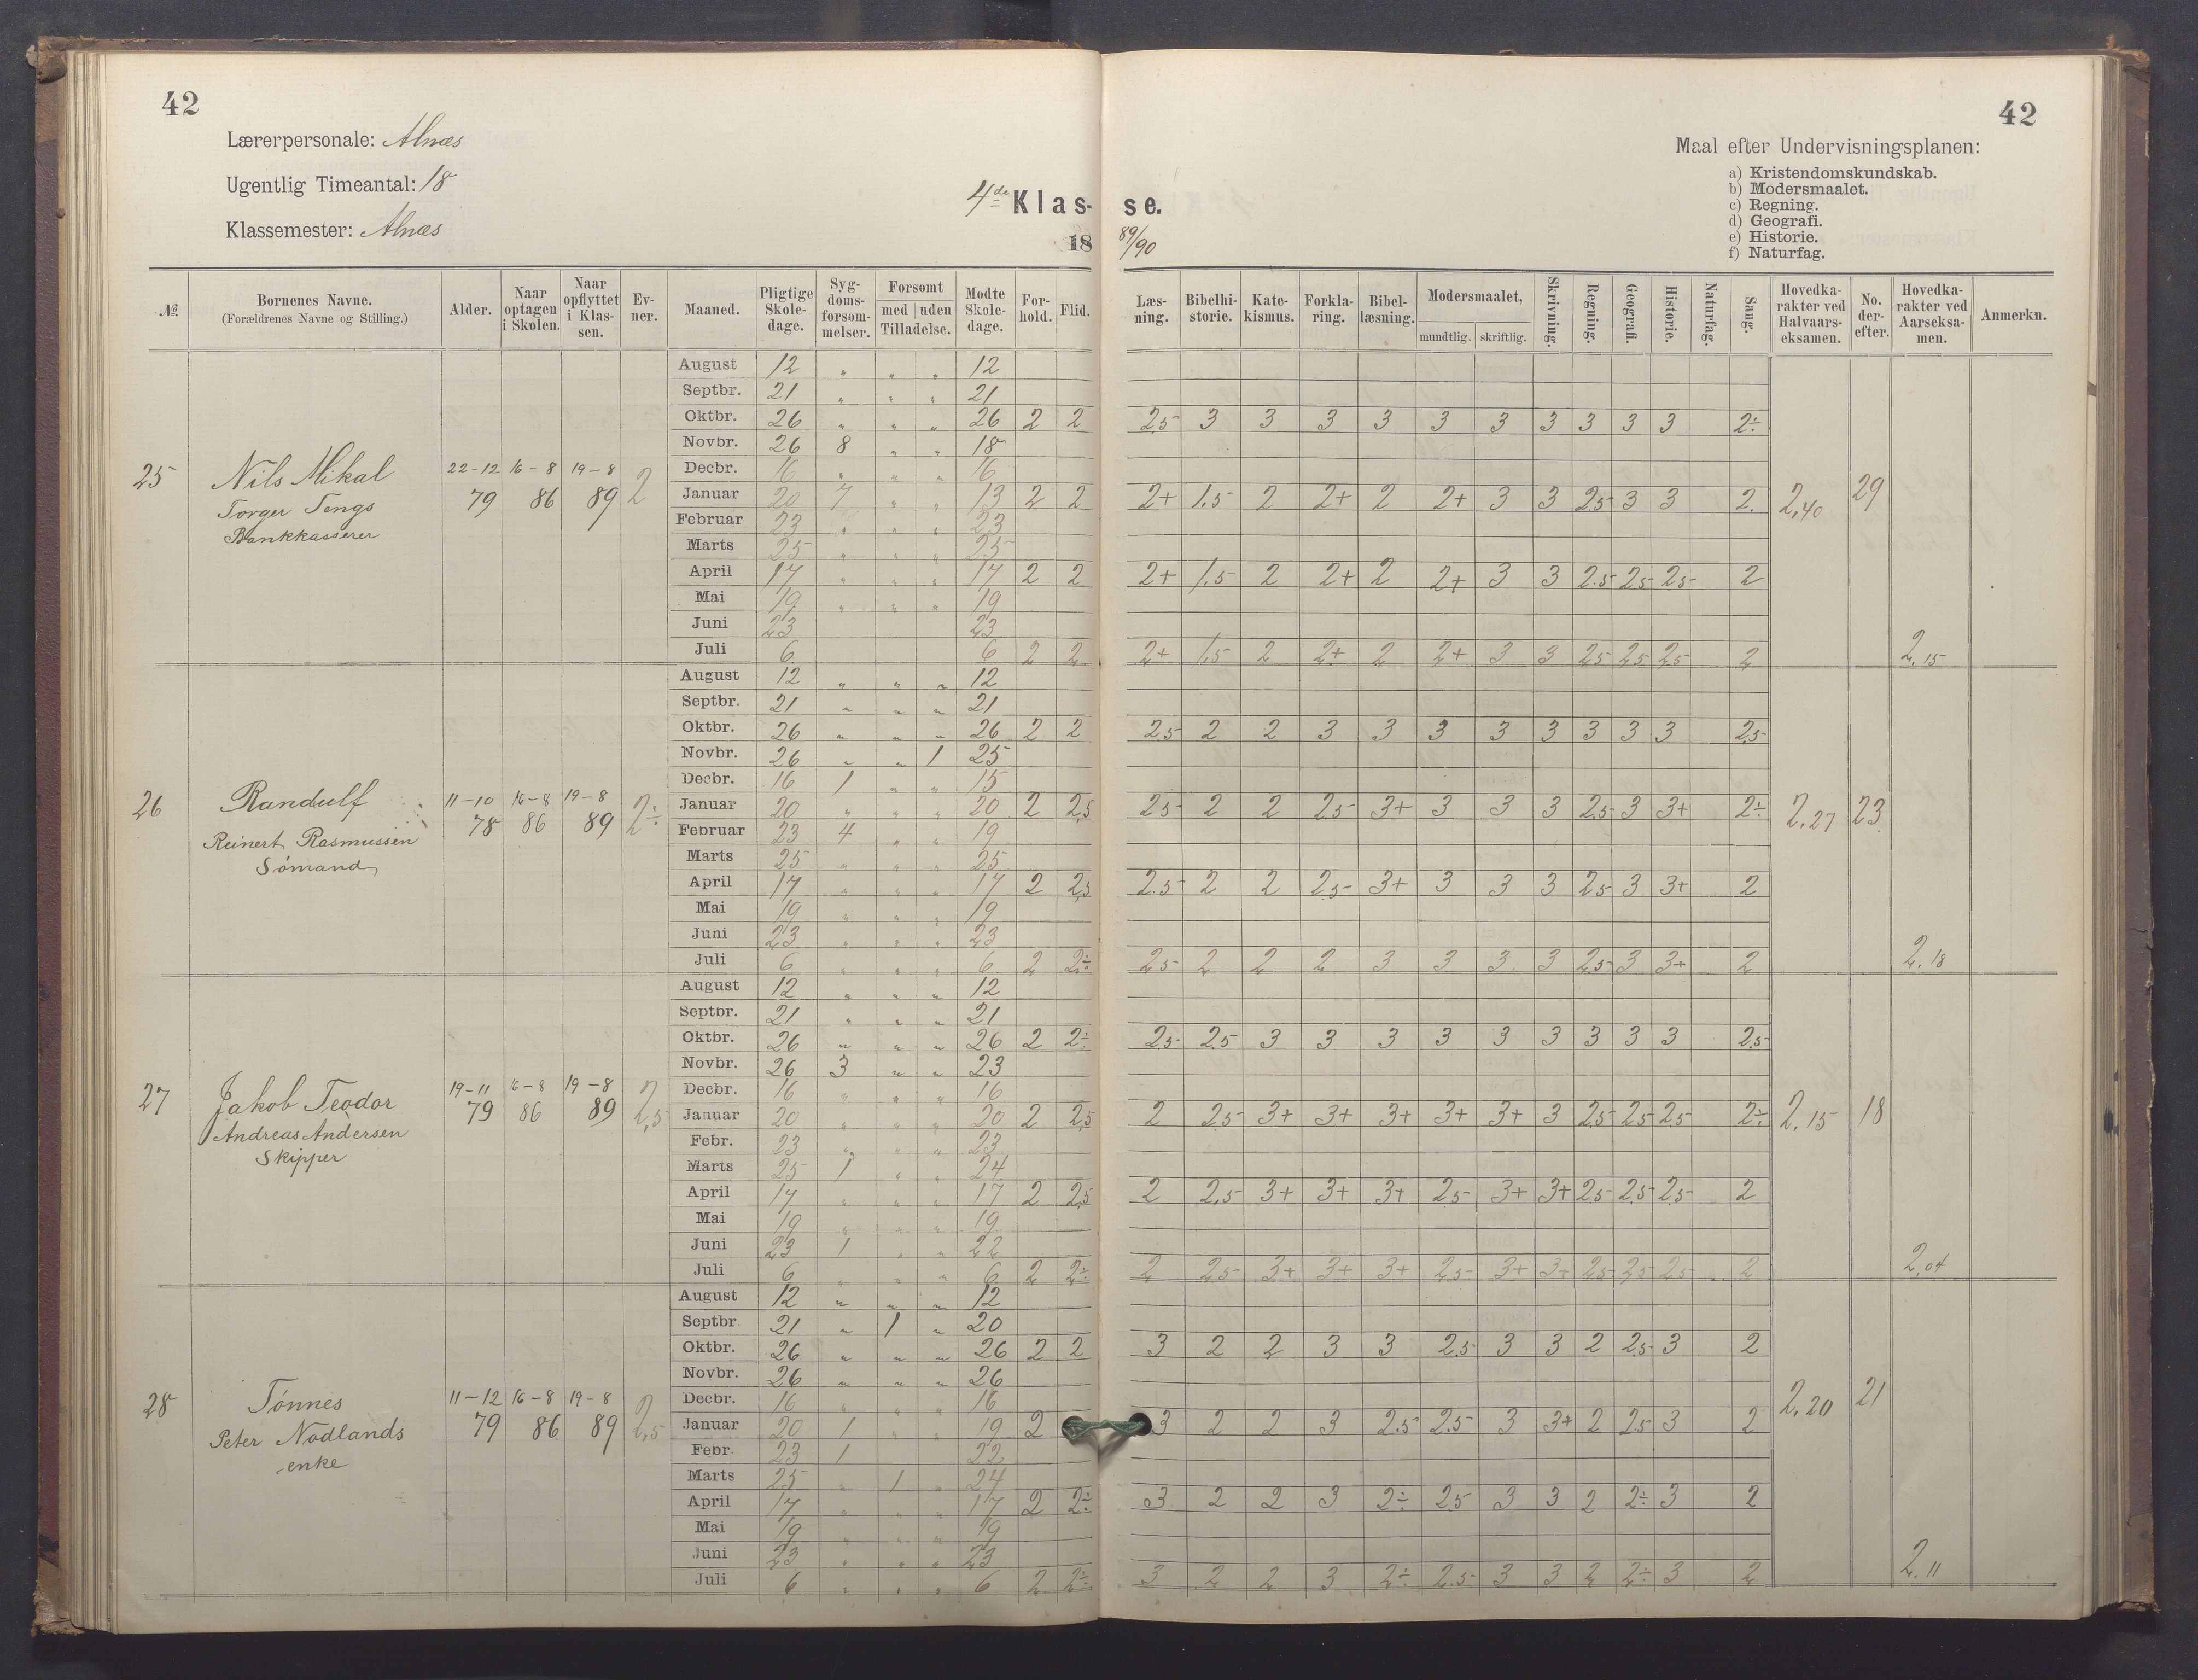 42
Lærerpersonale: Alnæs
Ugentlig Timeantal: 18
Klassemester: Alnæs
4de Klas-
18
№ Bornenes Navne. (Forældrenes Navne og Stilling.) Alder. Naar optagen i Skolen. Naar opflyttet i Klassen. Evner. Maaned. Pligtige Skoledage. Sygdomsforsommelser. Forsomt med uden Tilladelse. Modte Skoledage. Forhold. Flid.
25 Nils Mikal 22-12 79 16-8 86 19-8 89 2
Torger Tengs
Bankkasserer
August 12 " " " 12
Septbr. 21 " " " 21
Oktbr. 26 " " " 26 2 2
Novbr. 26 8 " " 18
Decbr. 16 " " " 16
Januar 20 7 " " 13 2 2
Februar 23 " " " 23
Marts 25 " " " 25
April 17 " " " 17 2 2
Mai 19 " " " 19
Juni 23 23
Juli 6 6 2 2
26 Randulf 11-10 78 16-8 86 19-8 89 2÷
Reinert Rasmussen
Sómand
August 12 " " " 12
Septbr. 21 " " " 21
Oktbr. 26 " " " 26 2 2
Novbr. 26 " " 1 25
Decbr. 16 1 " " 15
Januar 20 " " " 20 2 2,5
Februar 23 4 " " 19
Marts 25 " " " 25
April 17 " " " 17 2 2,5
Mai 19 " " " 19
Juni 23 " " " 23
Juli 6 " " " 6 2 2÷
27 Jakob Teodor 19-11 79 16-8 86 19-8 89 2,5
Andreas Andersen
Skipper
August 12 " " " 12
Septbr. 21 " " " 21
Oktbr. 26 " " " 26 2 2÷
Novbr. 26 3 " " 23
Decbr. 16 " " " 16
Januar 20 " " " 20 2 2,5
Febr. 23 " " " 23
Marts 25 1 " " 24
April 17 " " " 17 2 2,5
Mai 19 " " " 19
Juni 23 1 " " 22
Juli 6 " " " 6 2 2÷
28 Tónnes 11-12 79 16-8 86 19-8 89 2,5
Peter Nodlands
enke
August 12 " " " 12
Septbr. 21 " 1 " 20
Oktbr. 26 " " " 26 2 2
Novbr. 26 " " " 26
Decbr. 16 " " " 16
Januar 20 1 " " 19 2
Febr. 23 1 22
Marts 25 " 1 " 24
April 17 " " " 17 2 2÷
Mai 19 " " " 19
Juni 23 " " " 23
Juli 6 " " " 6 2 2÷
42
Maal efter Undervisningsplanen:
a) Kristendomskundskab.
b) Modersmaalet.
c) Regning.
d) Geografi.
e) Historie.
f) Naturfag.
se.
89/90
Læsning. Bibelhistorie. Katekismus. Forklaring. Bibellæsning. Modersmaalet, mundtlig. skriftlig. Skrivning. Regning. Geografi. Historie. Naturfag. Sang. Hovedkarakter ved Halvaarseksamen. No. derefter. Hovedkarakter ved Aarseksamen. Anmerkn.
2.5 3 3 3 3 3 3 3 3 3 3 2÷
2+ 1.5 2 2+ 2 2+ 3 3 2.5 3 3 2. 2,40 29
2+ 1.5 2 2+ 2 2+ 3 3 2.5 2.5 2.5 2
2+ 1.5 2 2+ 2 2+ 3 3 2.5 2.5 2.5 2 2,15
2.5 2 2 3 3 3 3 3 3 3 3 2.5
2.5 2 2 2.5 3+ 3 3 3 2.5 3 3+ 2÷ 2,27 23
2.5 2 2 2.5 3+ 3 3 3 2.5 3 3+ 2
2.5 2 2 2 3 3 3 3 2.5 3 3+ 2 2,18
2.5 2.5 3 3 3 3 3 3 3 3 3 2.5
2 2.5 3+ 3+ 3+ 3+ 3+ 3 2.5 2.5 2.5 2÷ 2,15 18
2 2.5 3+ 3+ 3+ 2.5 3+ 3+ 2.5 2.5 2.5 2
2 2.5 3+ 3+ 3+ 2.5 3+ 3+ 2.5 2.5 2.5 2 2,04
3 2 2 3 3 2.5 3 3 2 2.5 3 2
3 2 2 3 2.5 2.5 3 3+ 2 2.5 3 2 2,20 21
3 2 2 3 2÷ 2.5 3 3 2 2÷ 3 2
3 2 2 3 2÷ 2.5 3 3 2 2÷ 3 2 2,11